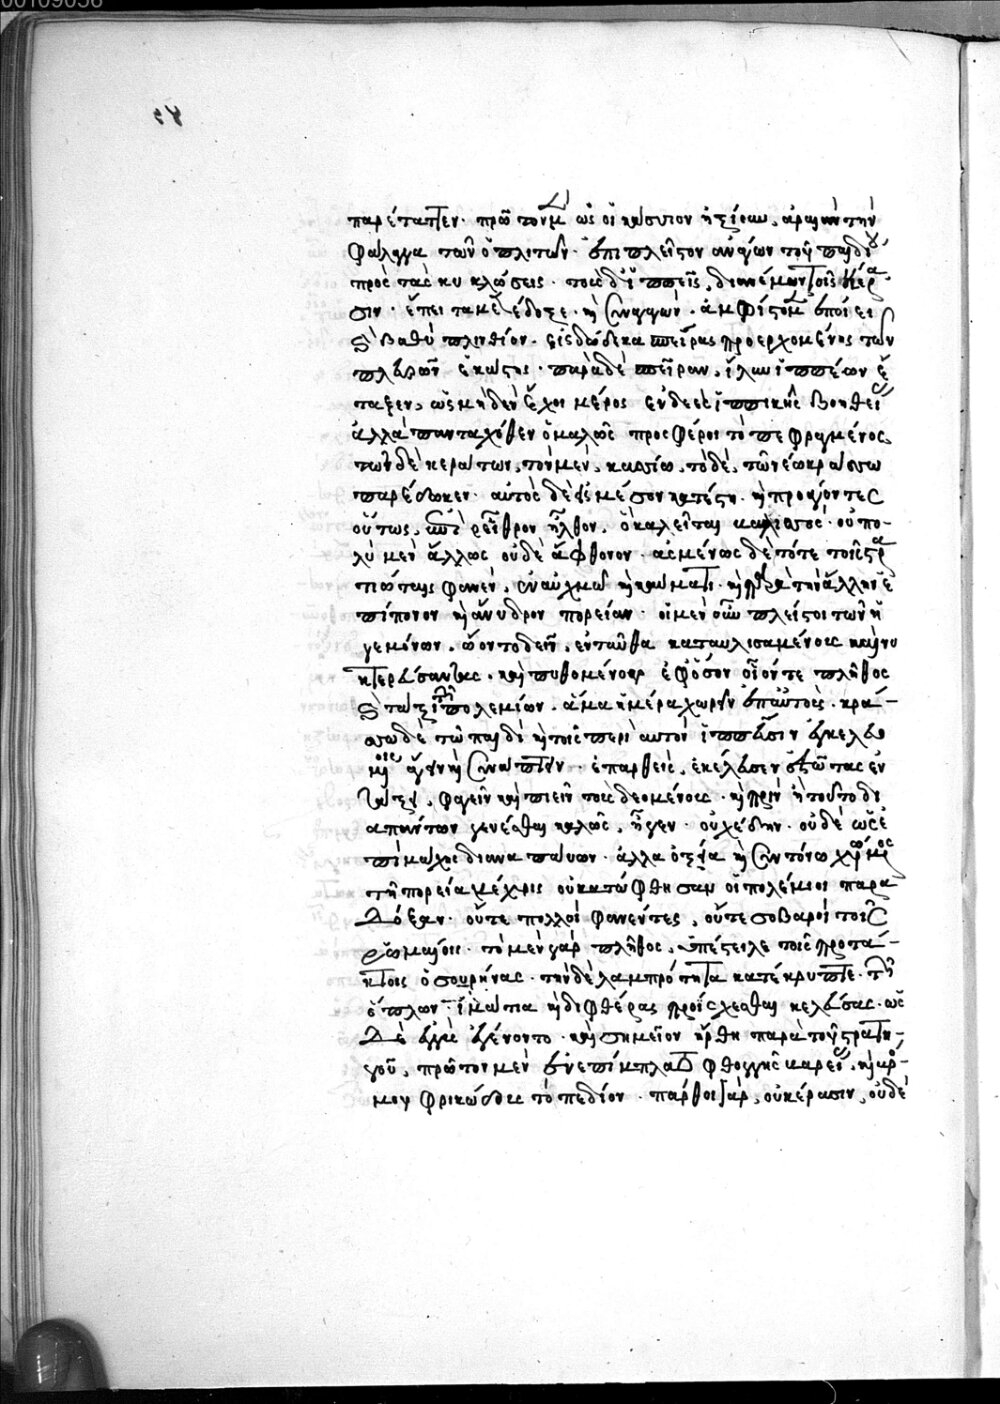 παρέταττεν· πρῶτον μὲν ὡς οἱ κάσσιον ἠξίουν, ἀραιὰν τὴν
φάλαγγα τῶν ὁπλιτῶν ἐπὶ πλεῖστον ἀνάγων τοῦ παιδίου
πρὸς τὰς κυκλώσεις· τοὺς δ' ἱππεῖς, διανέμων τοῖς κέρα
σιν· ἔπειτα μετέδοξε· καὶ συναγαγὼν· ἀμφίστομον ἐποίει
καὶ βαθὺ πλινθίον· εἰς δώδεκα σπείρας προερχομένης τῶν
πλευρῶν ἑκάστης· παρὰ δὲ σπεῖραν, ἴλην ἱππέων ἔ
ταξεν, ὡς μηδὲν ἔχοι μέρος ἐνδεὲς ἱππικῆς βοηθείας
ἀλλὰ πανταχόθεν ὁμαλῶς προσφέροι τὸ πεφραγμένος.
τῶν δὲ κεράτων, τὸν μὲν, κασσίω, τὸ δὲ, τῶ νέω κράσσω
παρέδωκεν· αὐτὸς δὲ εἰς μέσον κατέστη· καὶ προάγοντες
οὕτως, ἐπὶ ῥεῖθρον ἦλθον, ὃ καλεῖται βάλισσος· οὐ πο-
λὺ μὲν ἄλλως οὐδὲ ἄφθονον· ἀσμένως δὲ τότε τοῖς στρα
τιώταις φανὲν, ἐν αὐχμῶ καὶ καύματι· καὶ παρὰ τὴν ἄλλην ἐ
πίπονον καὶ ἄνυδρον πορείαν· οἱ μὲν οὖν πλεῖστοι τῶν ἡ
γεμόνων, ᾤοντο δεῖν, ἐνταῦθα καταυλισαμένους καὶ νυ
κτερεύσαντας· καὶ πυθομένους ἐφ' ὅσον οἷόν τε πλῆθος
καὶ τάξιν πολεμίων· ἅμα ἡμέρα χωρεῖν ἐπ' αὐτούς· κρά-
σσω δὲ τῶ παιδὶ καὶ τοῖς περὶ αὐτὸν ἱππεῦσιν ἐγκελευο
μένοις ἄγειν καὶ συνάπτειν· ἐπαρθεὶς, ἐκέλευσεν ἑστῶτας ἐν
τάξει, φαγεῖν καὶ πιεῖν τοὺς δεομένους· καὶ πρὶν ἢ τοῦτο δι
απάντων γενέσθαι καλῶς, ἦγεν· οὐ σχέδην· οὐδὲ ὡς ἐ
πὶ μάχης διαναπαύων· ἀλλὰ ὀξεία καὶ συντόνω χρώμενος
τῆ πορεία μέχρις οὗ κατώφθησαν οἱ πολέμιοι παρὰ
δόξαν· οὔτε πολλοὶ φανέντες, οὔτε σοβαροὶ τοῖς
ῥωμαίοις· τὸ μὲν γὰρ πλῆθος, ὑπέστειλε τοῖς προτά-
κτοις ὁ σουρήνας· τὴν δὲ λαμπρότητα κατέκρυπτε· τῶν
ὅπλων ἱμάτια καὶ διφθέρας προΐσχεσθαι κελεύσας· ὡς
δὲ ἐγγὺς ἐγένοντο· καὶ σημεῖον ἤρθη παρὰ τοῦ στρατη-
γοῦ, πρῶτον μὲν ἐνεπίμπλατο φθογγῆς βαρείας, καὶ βρό-
μου φρικώδους τὸ πεδίον· πάρθοι γὰρ, οὐ κέρασιν, οὐδὲ